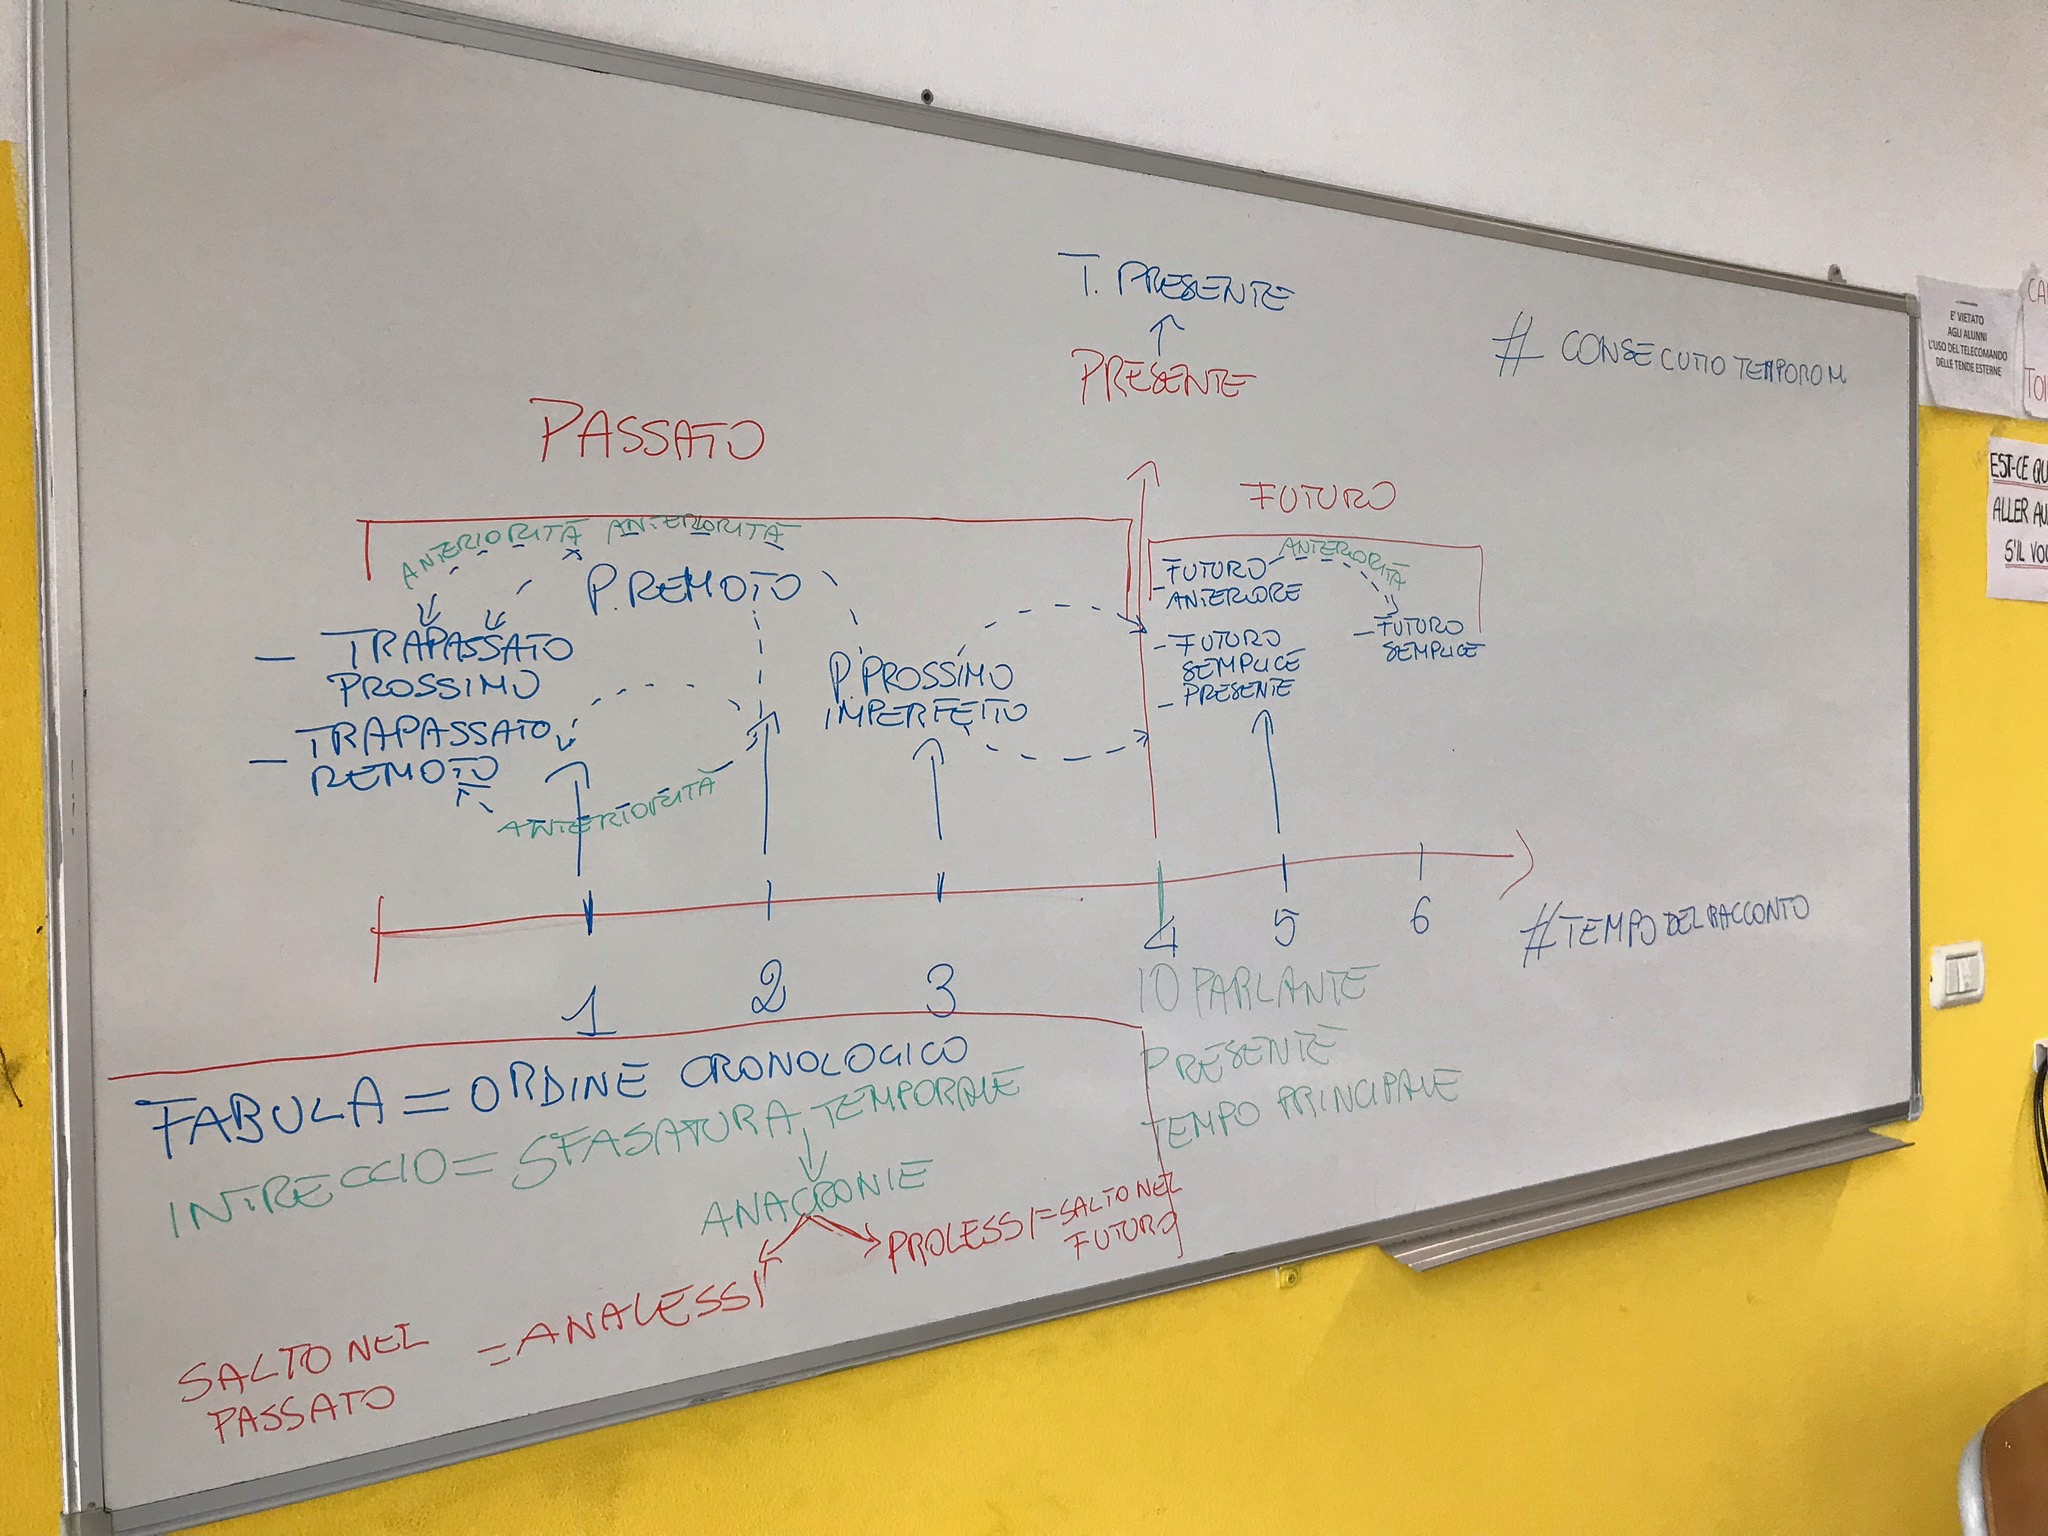 T. PRESENTE
PRESENTE
# CONSECUTIO TEMPOROM
PASSATO
FUTURO
ANTERIORITÀ ANTERIORITÀ
P. REMOTO
- TRAPASSATO
PROSSIMO
- TRAPASSATO
REMOTO
ANTERIORITÀ
P. PROSSIMO
IMPERFETTO
- FUTURO
ANTERIORE
ANTERIORITÀ
- FUTURO
SEMPLICE
- PRESENTE
- FUTURO
SEMPLICE
1 2 3 4 5 6
# TEMPO DEL RACCONTO
IO PARLANTE
PRESENTE
TEMPO PRINCIPALE
FABULA = ORDINE CRONOLOGICO
INTRECCIO = SFASATURA TEMPORALE
ANACRONIE
PROLESSI = SALTO NEL
FUTURO
SALTO NEL
PASSATO
= ANALESSI
E' VIETATO
AGLI ALUNNI
L'USO DEL TELECOMANDO
DELLE TENDE ESTERNE
EST-CE QU
ALLER AU
S'IL VO